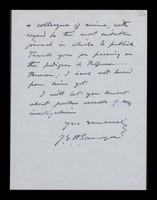 & colleague of mine, with
regard to the most suitable
journal in which to publish.
Thank you for passing on
the pedigree to Professor
I have not heard
from him yet.
I will let you know
about further results of my
investigations.
Yours sincerely